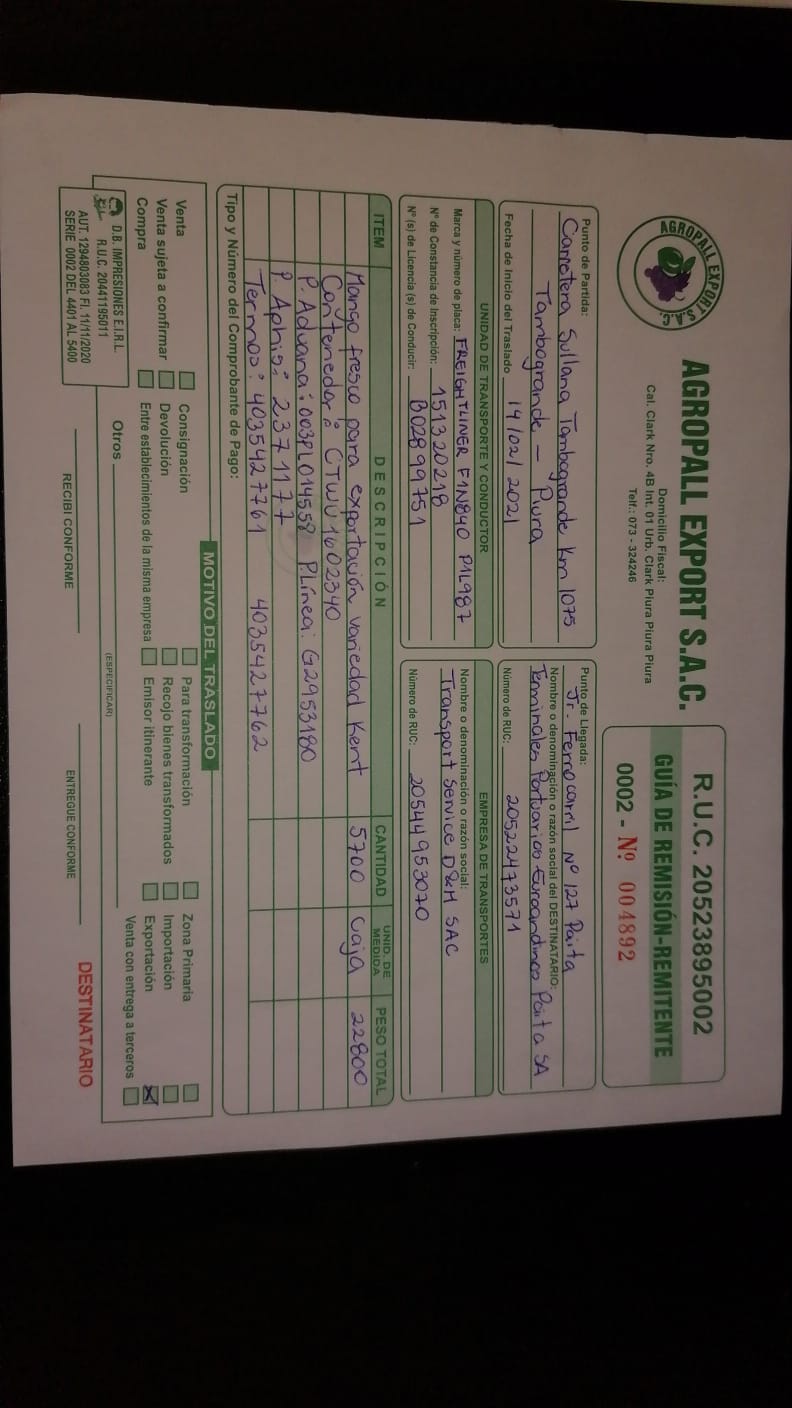 AGROPALL EXPORT S.A.C.
AGROPALL EXPORT S.A.C.
Domicilio Fiscal:
Cal. Clark Nro. 4B Int. 01 Urb. Clark Piura Piura Piura
Telf.: 073 - 324246
R.U.C. 20523895002
GUÍA DE REMISIÓN-REMITENTE
0002 - Nº 004892
Punto de Partida:
Carretera Sullana Tambogrande Km 1075
Tambogrande - Piura
Fecha de Inicio del Traslado 14/02/2021
Punto de Llegada:
Jr. Ferrocarril Nº 127 Paita
Nombre o denominación o razón social del DESTINATARIO:
Terminales Portuarios Euroandinos Paita SA
Número de RUC: 20522473571
UNIDAD DE TRANSPORTE Y CONDUCTOR
Marca y número de placa: FREIGHTLINER F1N840 P1L987
Nº de Constancia de Inscripción: 151320218
Nº (s) de Licencia (s) de Conducir: B02899751
EMPRESA DE TRANSPORTES
Nombre o denominación o razón social:
Transport Service D&M SAC
Número de RUC: 20544953070
ITEM DESCRIPCIÓN CANTIDAD UNID. DE MEDIDA PESO TOTAL
Mango fresco para exportación variedad Kent 5700 Caja 22800
Contenedor: CTWU 1602340
P. Aduana: 003PL014558 P.Línea: G2953180
P. Aphis: 2371177
Termos: 4035427761 4035427762
Tipo y Número del Comprobante de Pago:
MOTIVO DEL TRASLADO
Venta Consignación Para transformación Zona Primaria
Venta sujeta a confirmar Devolución Recojo bienes transformados Importación
Compra Entre establecimientos de la misma empresa Emisor itinerante Exportación X
Venta con entrega a terceros
Otros
(ESPECIFICAR)
D.B. IMPRESIONES E.I.R.L.
R.U.C. 20441195011
AUT. 1294803083 FI. 11/11/2020
SERIE 0002 DEL 4401 AL 5400
RECIBI CONFORME
ENTREGUE CONFORME
DESTINATARIO